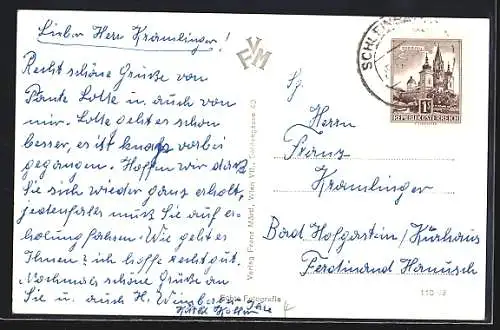 Lieber Herr Kramlinger!
Recht schöne Grüße von
Tante Lotte u. auch von
mir. Lotte geht es schon
besser, es ist knapp vorbei
gegangen. Hoffen wir daß
Sie sich wieder ganz erholt,
jedenfalls muß Sie auf er-
holung fahren. Wie geht es
Ihnen? ich hoffe recht gut.
Nochmals schöne Grüße an
Sie u. auch H.
Ihre
VFM
Verlag Franz Mörtl, Wien VII.
Echte Fotografie
SCHLEINBACH
1S
REPUBLIK ÖSTERREICH
Herrn
Franz
Kramlinger
Bad Hofgastein / Kurhaus
Ferdinand Hanusch
110